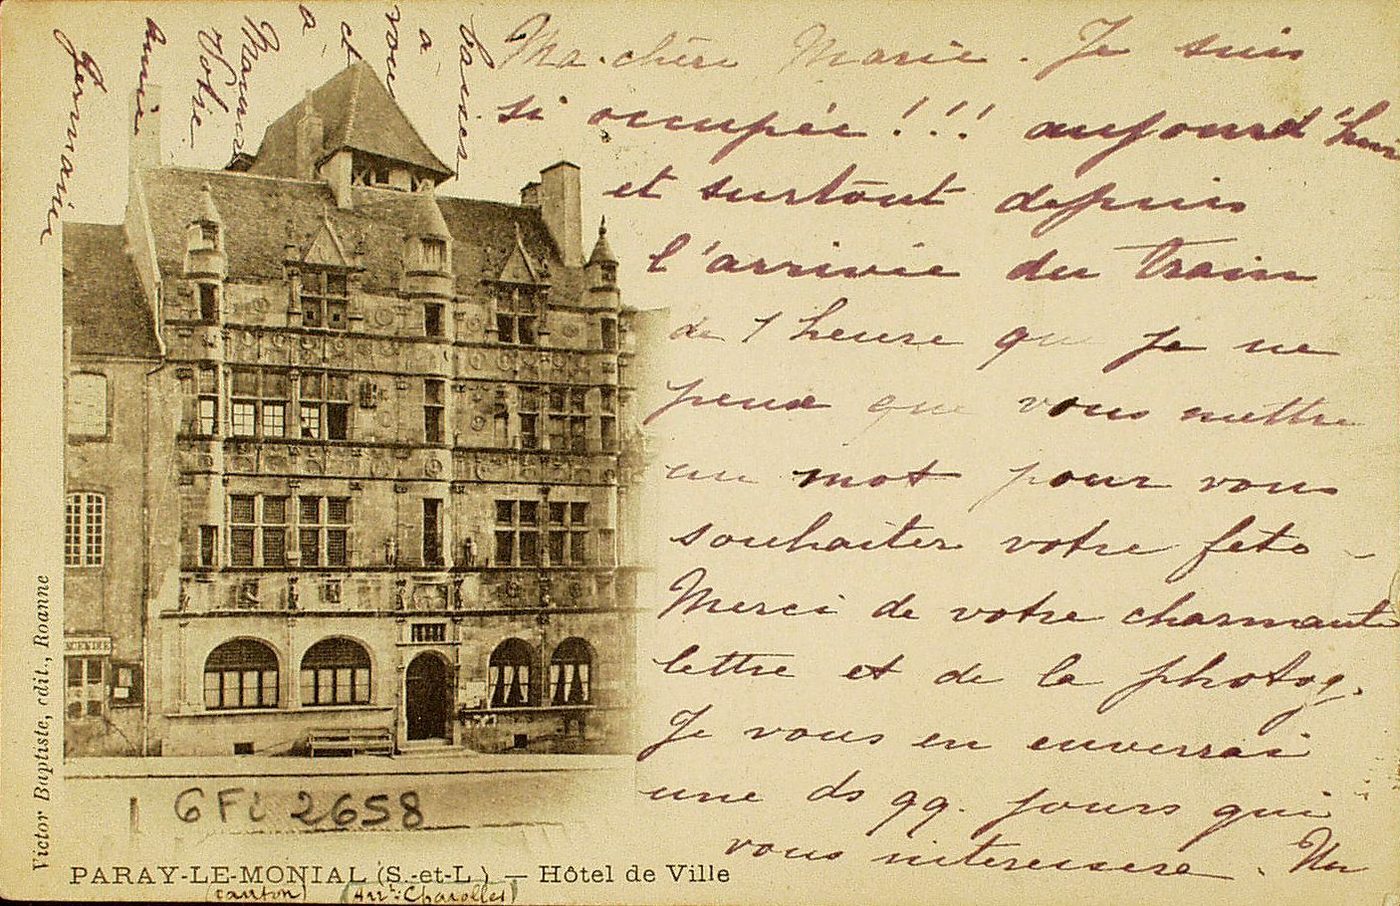 Ma chère Marie. Je suis
si occupée !!! aujourd'hui
et surtout depuis
l'arrivée du train
de 1 heure que je ne
peux que vous mettre
un mot pour vous
souhaiter votre fête -
Merci de votre charmante
lettre et de la photog.
Je vous en enverrai
une ds qq. jours qui
vous intéressera. Un
baiser
à
vous
et
à
Votre
amie
Germaine
Victor Baptiste, édit., Roanne
6 Fi 2658
PARAY-LE-MONIAL (S.-et-L.) — Hôtel de Ville
(canton) (Arrt Charolles)